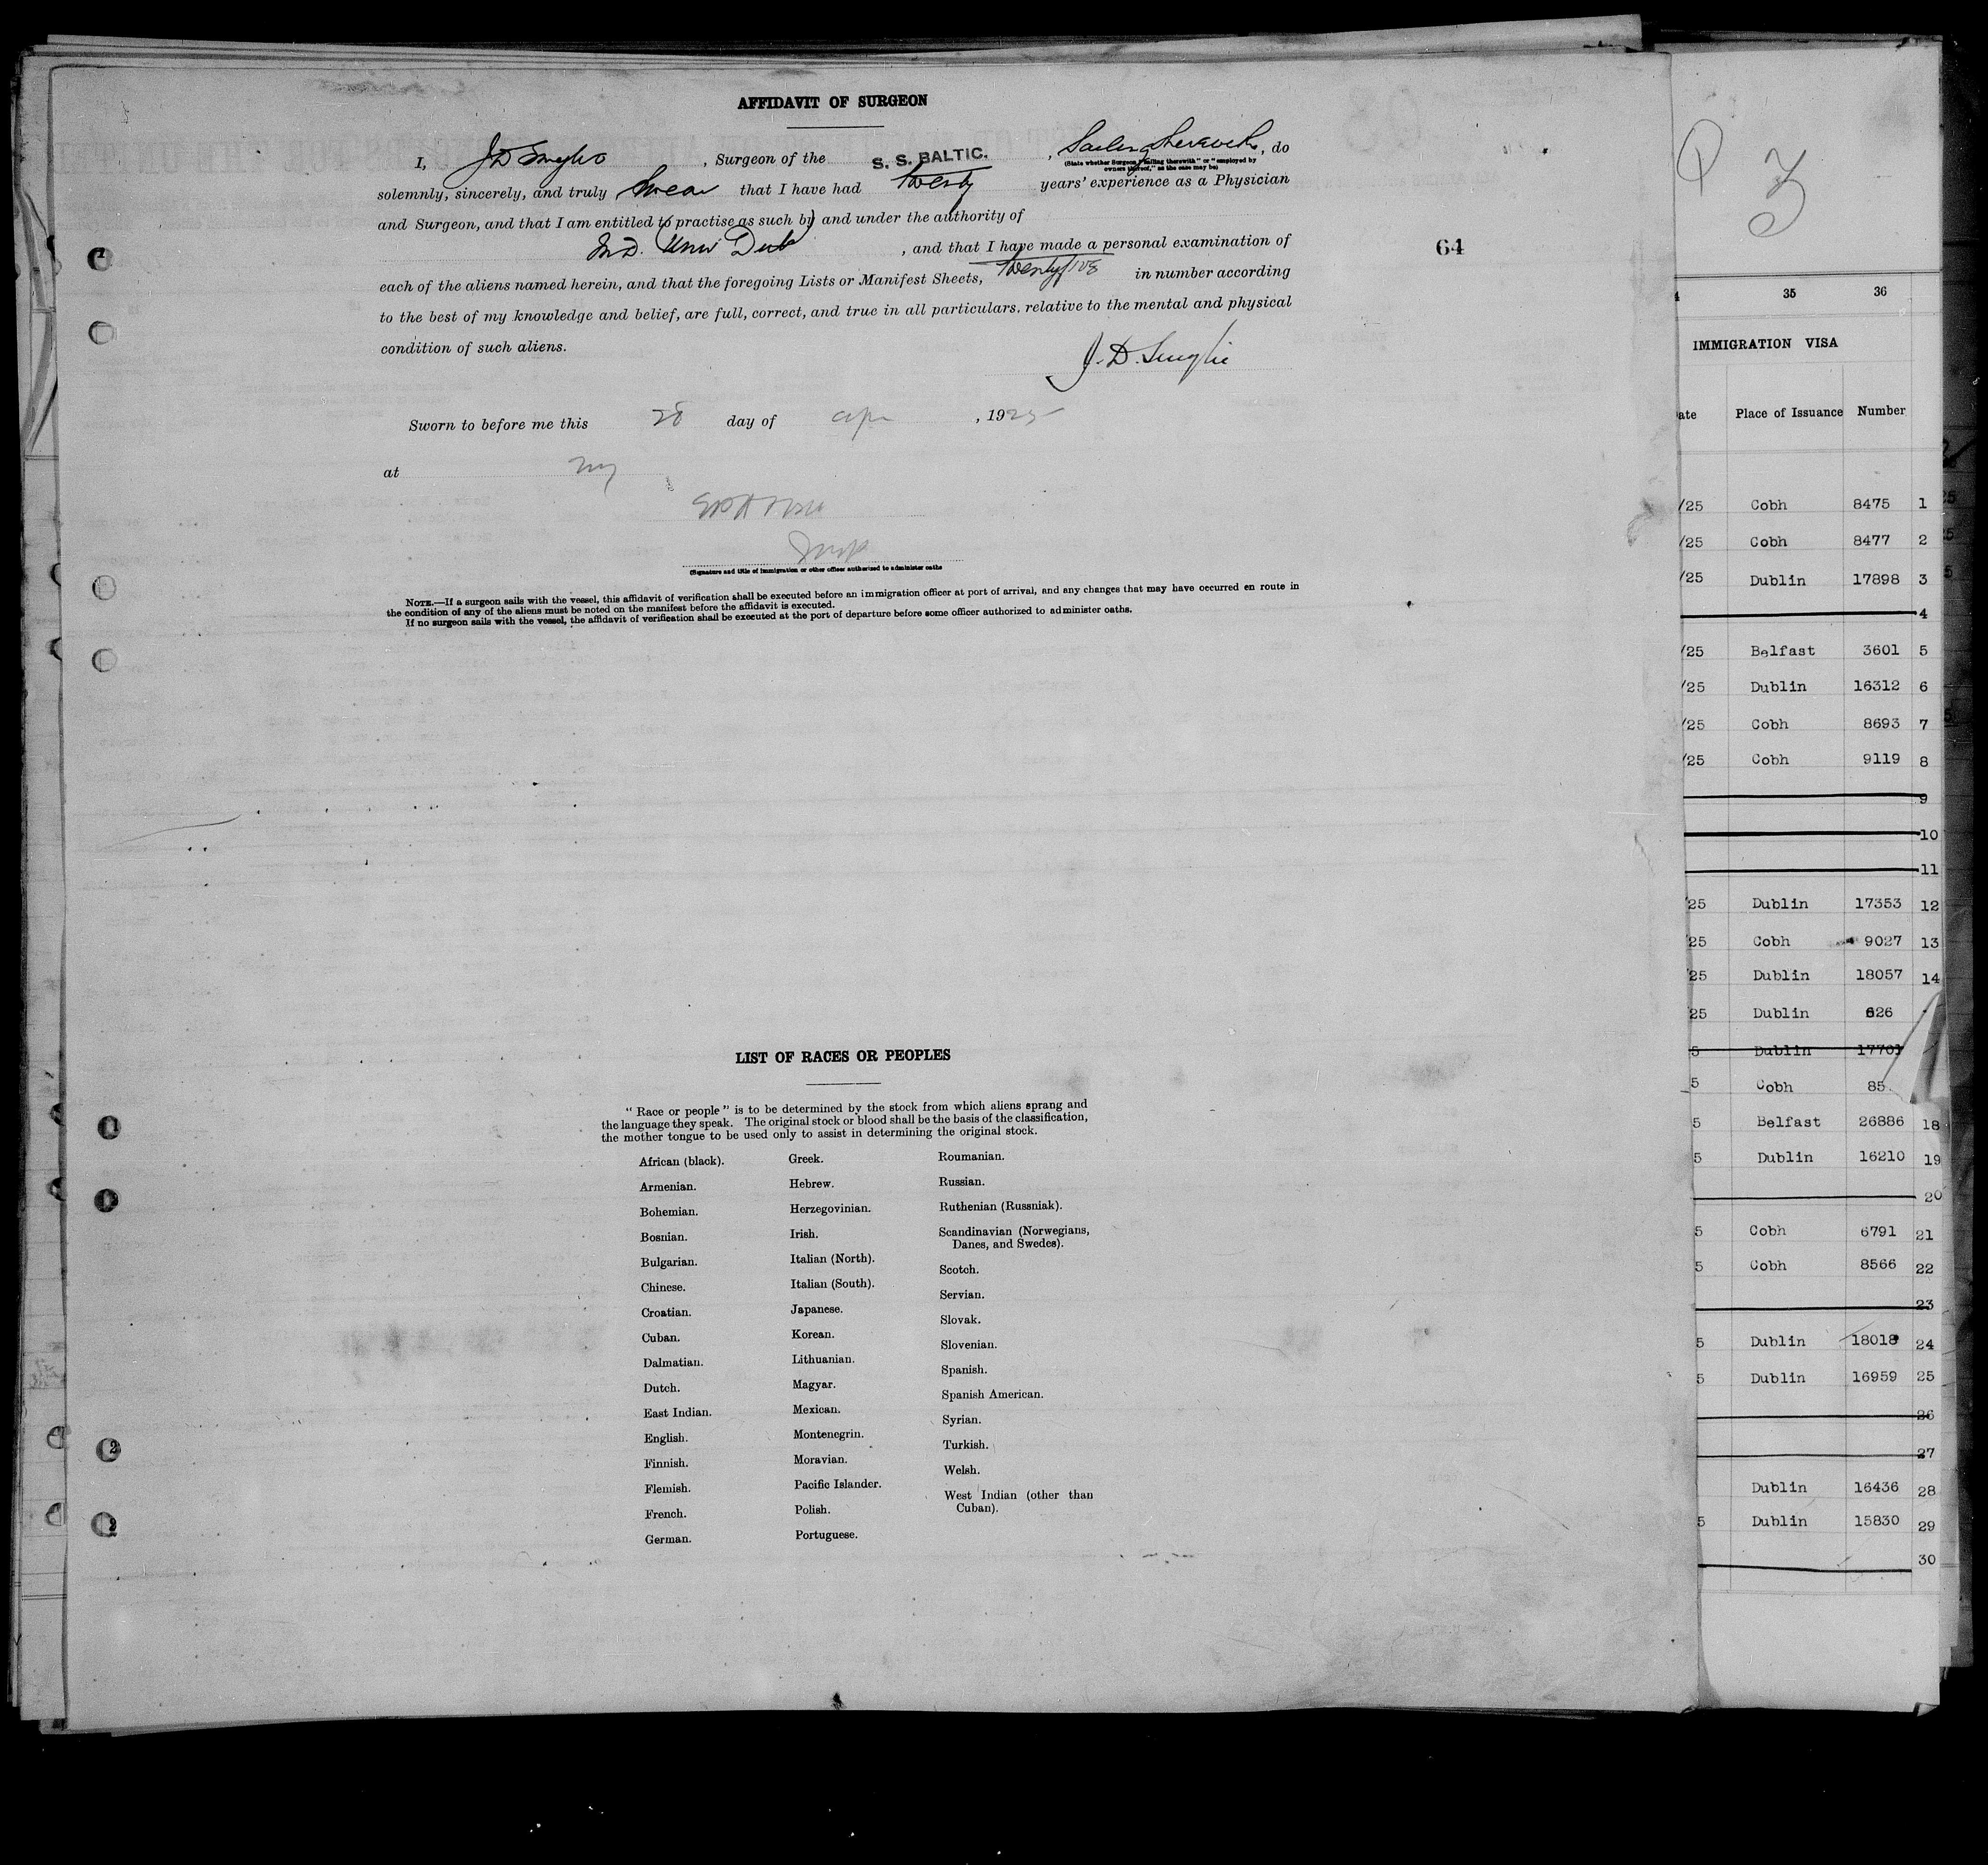 AFFIDAVIT OF SURGEON
I, J D , Surgeon of the S. S. BALTIC. , Sailing therewith , do
(State whether Surgeon "sailing therewith" or "employed by
owners thereof," as the case may be)
solemnly, sincerely, and truly Swear that I have had twenty years' experience as a Physician
and Surgeon, and that I am entitled to practise as such by and under the authority of
M.D. Univ Dub , and that I have made a personal examination of
each of the aliens named herein, and that the foregoing Lists or Manifest Sheets, twentyfive in number according
to the best of my knowledge and belief, are full, correct, and true in all particulars, relative to the mental and physical
condition of such aliens.
J. D.
Sworn to before me this 28 day of apr , 1925
at ny
Insp
(Signature and title of immigration or other officer authorized to administer oaths
NOTE.—If a surgeon sails with the vessel, this affidavit of verification shall be executed before an immigration officer at port of arrival, and any changes that may have occurred en route in
the condition of any of the aliens must be noted on the manifest before the affidavit is executed.
If no surgeon sails with the vessel, the affidavit of verification shall be executed at the port of departure before some officer authorized to administer oaths.
64
LIST OF RACES OR PEOPLES
" Race or people " is to be determined by the stock from which aliens sprang and
the language they speak. The original stock or blood shall be the basis of the classification,
the mother tongue to be used only to assist in determining the original stock.
African (black).
Armenian.
Bohemian.
Bosnian.
Bulgarian.
Chinese.
Croatian.
Cuban.
Dalmatian.
Dutch.
East Indian.
English.
Finnish.
Flemish.
French.
German.
Greek.
Hebrew.
Herzegovinian.
Irish.
Italian (North).
Italian (South).
Japanese.
Korean.
Lithuanian.
Magyar.
Mexican.
Montenegrin.
Moravian.
Pacific Islander.
Polish.
Portuguese.
Roumanian.
Russian.
Ruthenian (Russniak).
Scandinavian (Norwegians,
Danes, and Swedes).
Scotch.
Servian.
Slovak.
Slovenian.
Spanish.
Spanish American.
Syrian.
Turkish.
Welsh.
West Indian (other than
Cuban).
35 36
IMMIGRATION VISA
ate Place of Issuance Number
/25 Cobh 8475 1
/25 Cobh 8477 2
/25 Dublin 17898 3
4
/25 Belfast 3601 5
/25 Dublin 16312 6
/25 Cobh 8693 7
/25 Cobh 9119 8
9
10
11
25 Dublin 17353 12
25 Cobh 9027 13
25 Dublin 18057 14
25 Dublin 626
5 Dublin 17701
5 Cobh 85
5 Belfast 26886 18
5 Dublin 16210 19
20
5 Cobh 6791 21
5 Cobh 8566 22
23
5 Dublin 18018 24
5 Dublin 16959 25
26
27
Dublin 16436 28
5 Dublin 15830 29
30